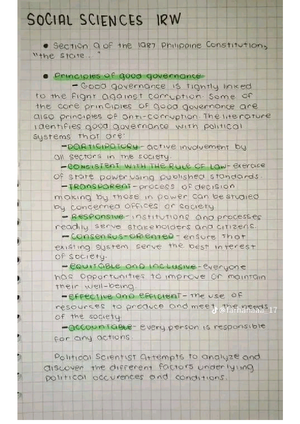 SOCIAL SCIENCES IRW
• Section 9 of the 1987 Philippine Constitution,
"the state
• Principles of good governance
- Good governance is tightly linked
to the fight against corruption. Some of
the core principles of good governance are
also principles of anti-corruption. The literature
identifies good governance with political
systems that are:
- PARTICIPATORY - active involvement by
all sectors in the society
- CONSISTENT WITH THE RULE OF LAW - exercise
of state power using published standards
- TRANSPARENT - process of decision
making by those in power can be studied
by concerned offices or society.
- RESPONSIVE - institutions and processes
readily serve stakeholders and citizens
- CONSENSUS-ORIENTED - ensure that
existing system serve the best interest
of society.
- EQUITABLE AND INCLUSIVE - Everyone
has opportunities to improve or maintain
their well-being.
- EFFECTIVE AND EFFICIENT - the use of
resources to produce and meet the needs
of the society.
- ACCOUNTABLE - Every person is responsible
for any actions
Political Scientist Attempts to analyze and
discover the different factors underlying
political occurences and conditions.